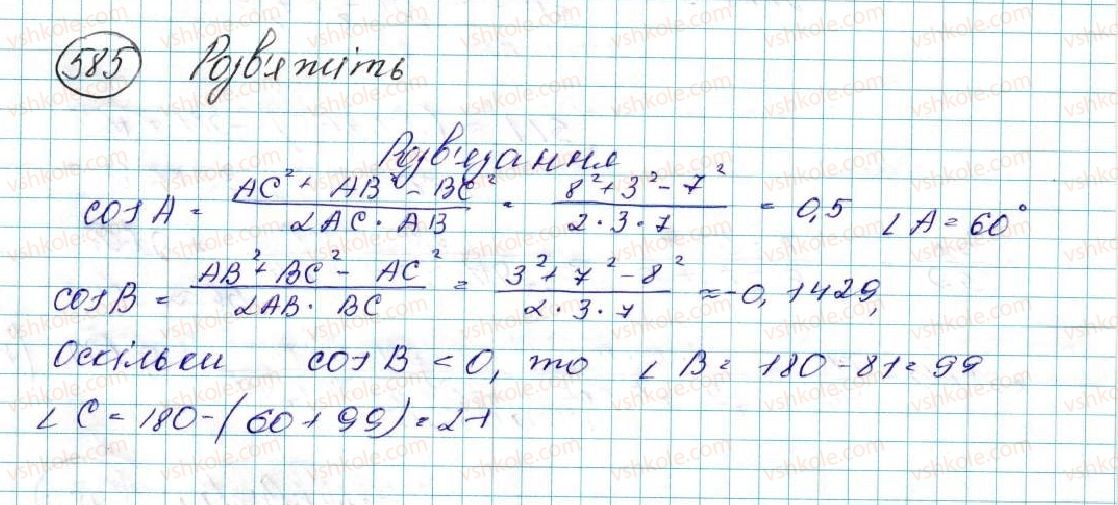 585 Розв'яжіть
Розв'язання
cos A = (AC² + AB² - BC²) / (2AC · AB) = (8² + 3² - 7²) / (2 · 3 · 7) = 0,5 ∠A = 60°
cos B = (AB² + BC² - AC²) / (2AB · BC) = (3² + 7² - 8²) / (2 · 3 · 7) ≈ -0,1429,
Оскільки cos B < 0, то ∠B = 180 - 81 = 99
∠C = 180 - (60 + 99) = 21